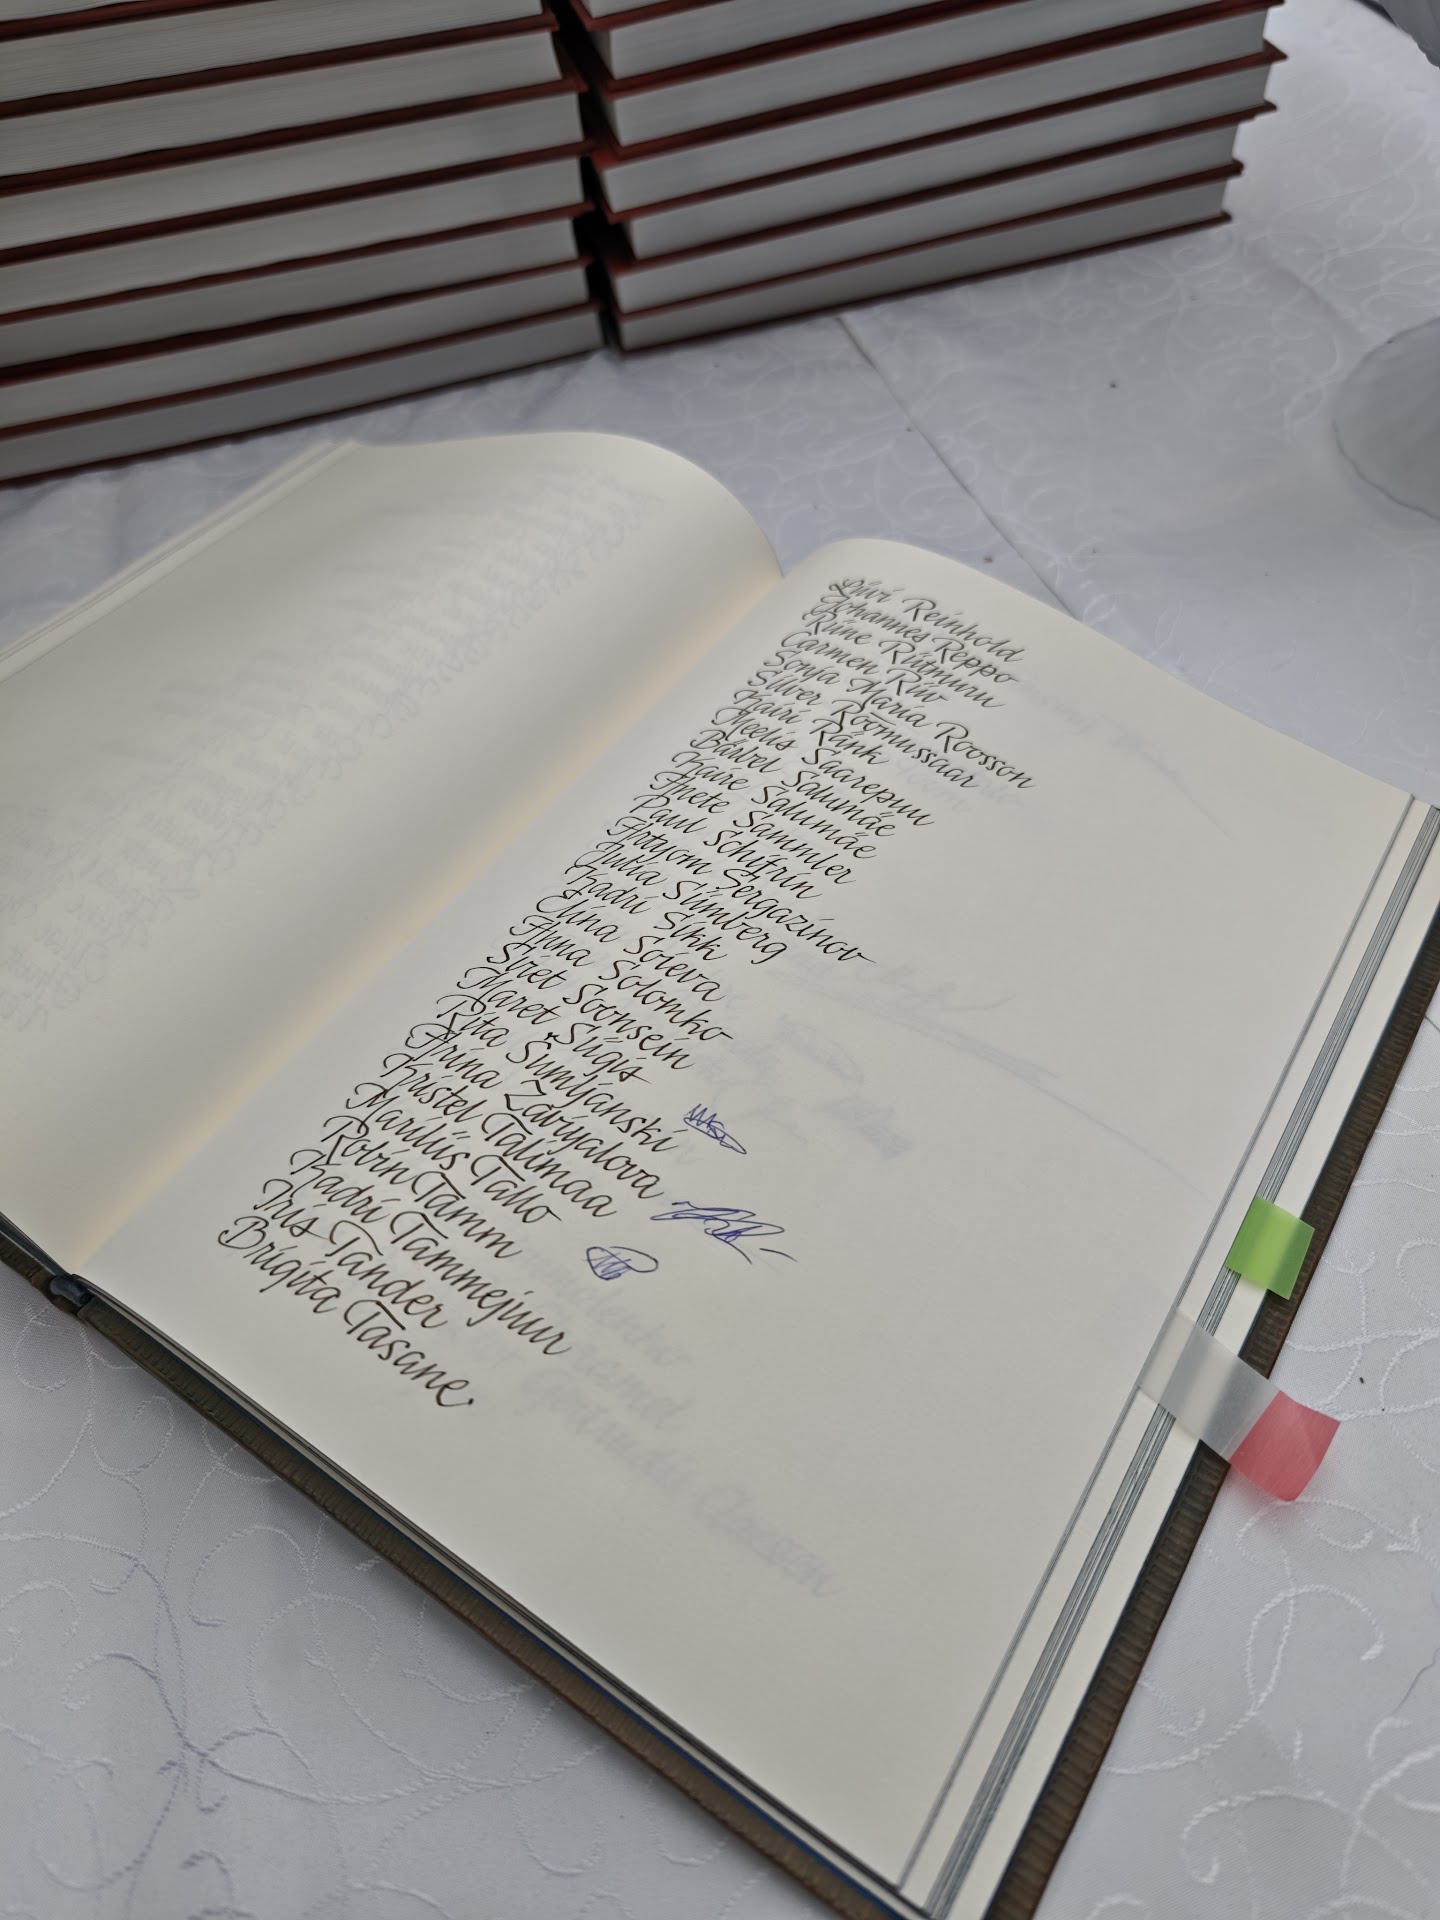 Liivi Reinhold
Johannes Reppo
Rune Rütmuru
Carmen Rüv
Sonja Maria Roosson
Silver Rõõmussaar
Kairi Ränk
Meelis Saarepuu
Bärbel Salumäe
Kaire Salumäe
Anete Sammler
Paul Schifrin
Artyom Sergazinov
Julia Siimberg
Kadri Sikk
Elina Soieva
Anna Solomko
Siret Soonsein
Maret Sügis
Rita Šumljanski
Arina Zavyalova
Kristel Talimaa
Mariliis Tallo
Robin Tamm
Kadri Tammejuur
Iris Tander
Brigita Tasane.